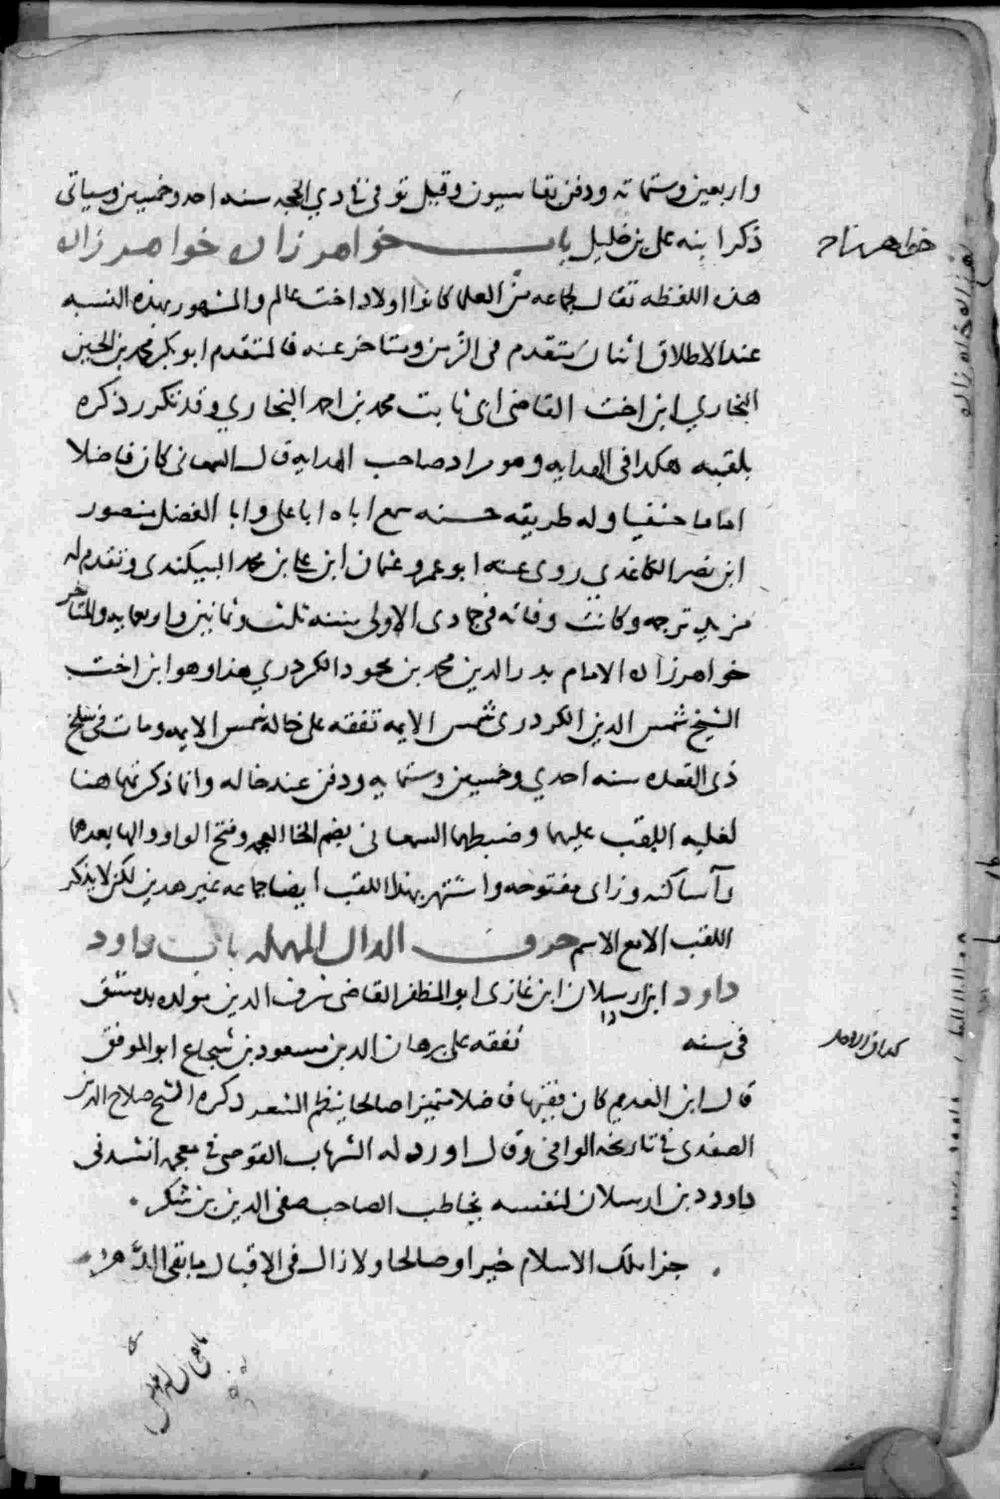 واربعين وستماته ودفن بقاسيون وقيل توفي في دي الحجه سنه احد وخمسين وسياتى
ذكر ابنه على بن خليل باب خواهر زاده خواهر زاده
خواهرزاده
هذه اللفظه تقال لجماعه من العلما كانوا اولاد اخت عالم والمشهور بهذه النسبه
عند الاطلاق اثنان متقدم فى الزمن ومتاخر عنه فالمتقدم ابو بكر محمد بن الحسين
البخاري ابن اخت القاضى ابى ثابت محمد بن احمد البخاري وقد تكرر ذكره
بلقبه هكدا فى الهدايه وهو مراد صاحب الهدايه قال السمعانى كان فاضلا
اماما حنفيا وله طريقه حسنه سمع اباه ابا على وابا الفضل منصور
ابن نصر الكاغدي روى عنه ابو عمرو عثمان ابن على بن محمد البيكندى وتقدم له
مزيد ترجمه وكانت وفاته فى جمادى الاولى سنه ثلث وثمانين واربعمايه والمتاخر
خواهرزاده الامام بدر الدين محمد بن محمود الكردري هذا وهو ابن اخت
الشيخ شمس الدين الكردرى شمس الايمه تفقه على خاله شمس الايمه ومات فى سلخ
ذى القعده سنه احدي وخمسين وستمايه ودفن عند خاله وانما ذكرتهما هنا
لغلبه اللقب عليهما وضبطهما السمعانى بضم الخا المعجمه وفتح الواو والها بعدهما
رآ ساكنه وزاى مفتوحه واشتهر بهذا اللقب ايضا جماعه غير هدين لكن لا يذكر
اللقب الا مع الاسم حرف الدال المهمله باب داود
داود ابن ارسلان ابن غازى ابو المظفر القاضى شرف الدين مولده بدمشق
فى سنه تفقه على برهان الدين مسعود بن شجاع ابو الموفق
كدا فى الاصل
قال ابن العديم كان فقيها فاضلا متميزا صالحا ينظم الشعر ذكره الشيخ صلاح الدين
الصفدى فى تاريخه الوافى وقال اورد له الشهاب القوصى فى معجمه انشدنى
داوود بن ارسلان لنفسه يخاطب الصاحب صفى الدين بن شكر .
. جزا ملك الاسلام خيرا وصالحا ولا زال فى الاقبال ما بقى الدهر